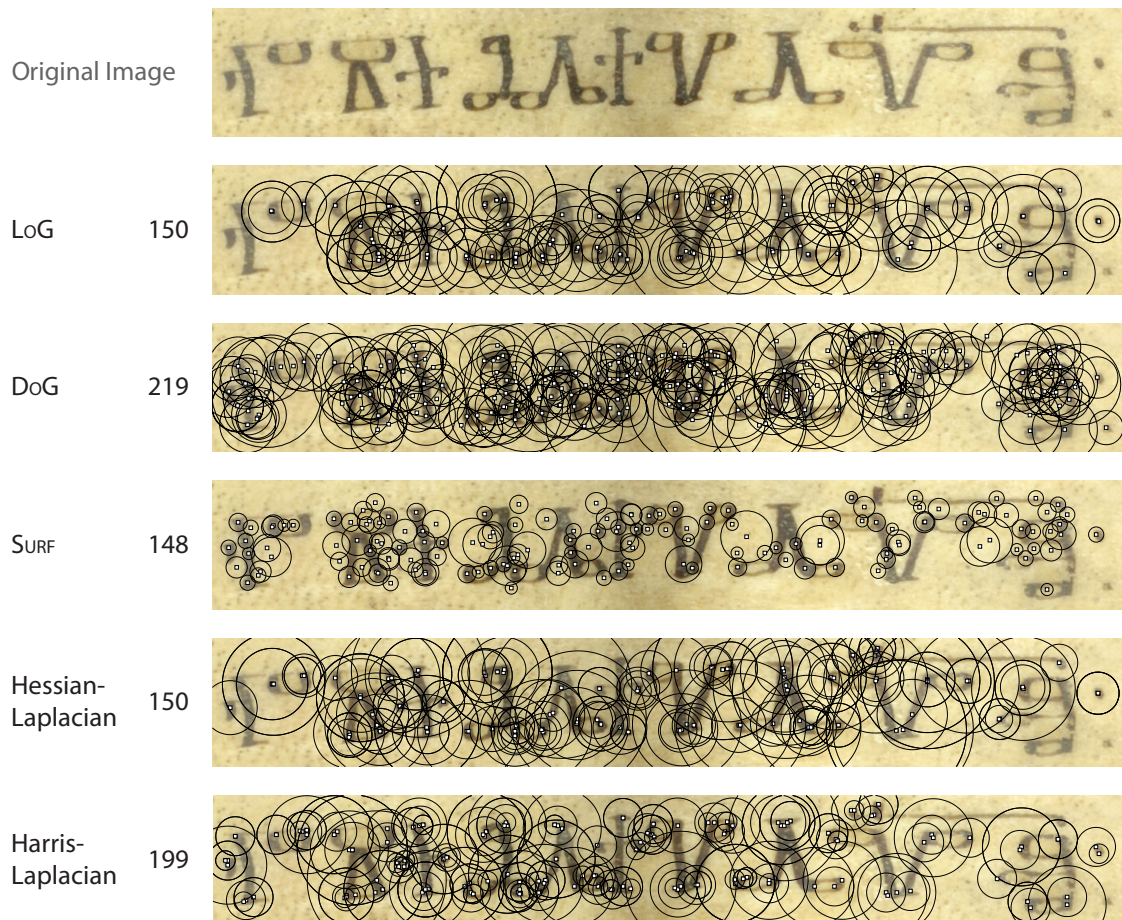 Original Image
LoG 150
DoG 219
SURF 148
Hessian-
Laplacian 150
Harris-
Laplacian 199